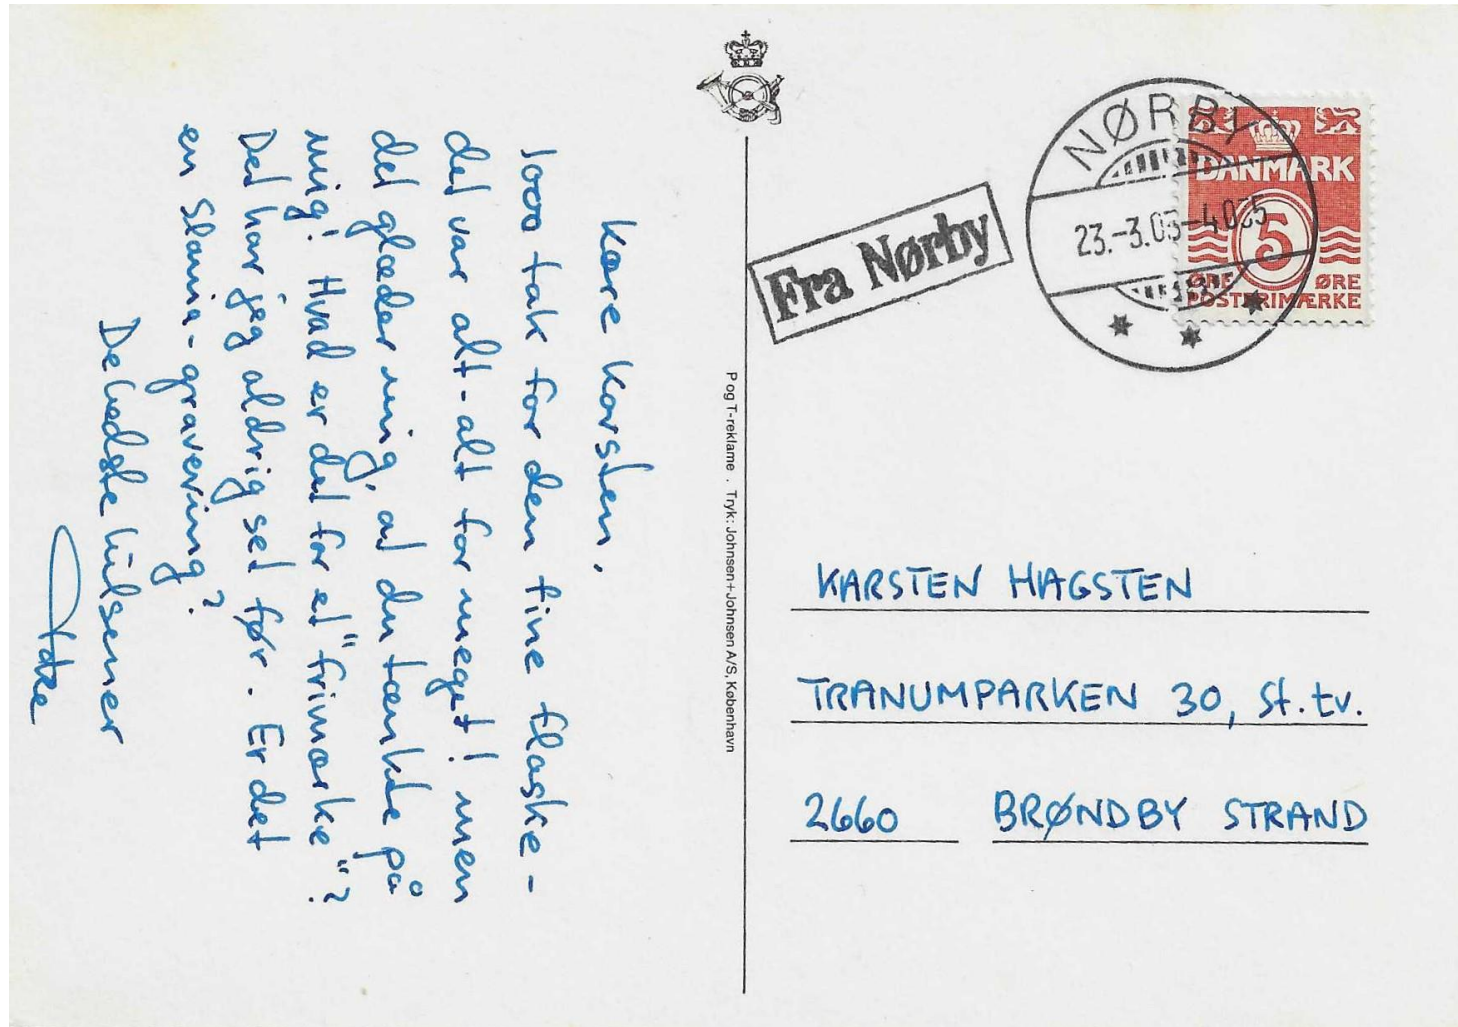 Kære Karsten,
1000 tak for den fine flaske -
det var alt-alt for meget! men
det glæder mig, at du tænkte på
mig! Hvad er det for et "frimærke"?
Det har jeg aldrig set før. Er det
en Slania-gravering?
De bedste hilsener
P og T-reklame . Tryk: Johnsen+Johnsen A/S, København
Fra Nørby
NØRBY
23.-3.03-4.035
DANMARK
5
ØRE ØRE
POSTFRIMÆRKE
KARSTEN HAGSTEN
TRANUMPARKEN 30, st. tv.
2660 BRØNDBY STRAND